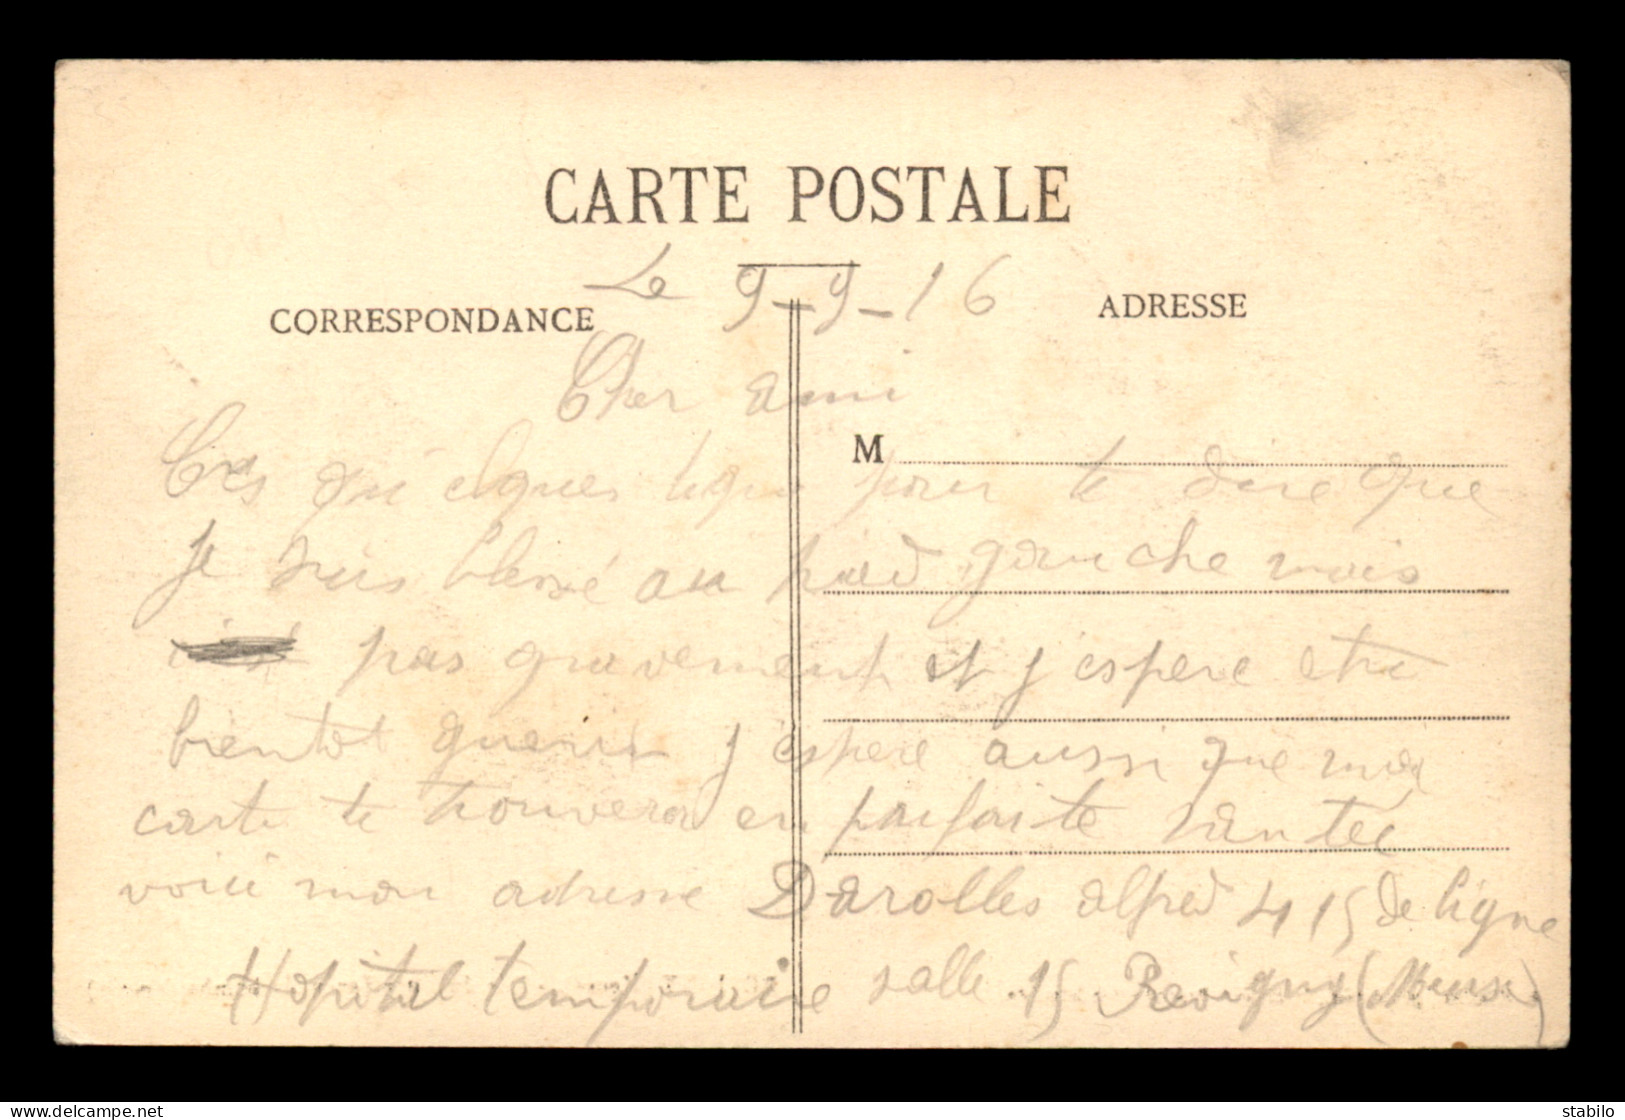 CARTE POSTALE
Le 9-9-16
CORRESPONDANCE
ADRESSE
Cher ami
M
Ces quelques ligne pour te dire que
je suis blessé au pied gauche mais
pas gravement et j espere etre
bientot guerir j espere aussi que ma
carte te trouvera en parfaite santée
voici mon adresse Darolles alfred 415 de ligne
Hopital temporaire salle 15 Revigny (Meuse)
stabilo